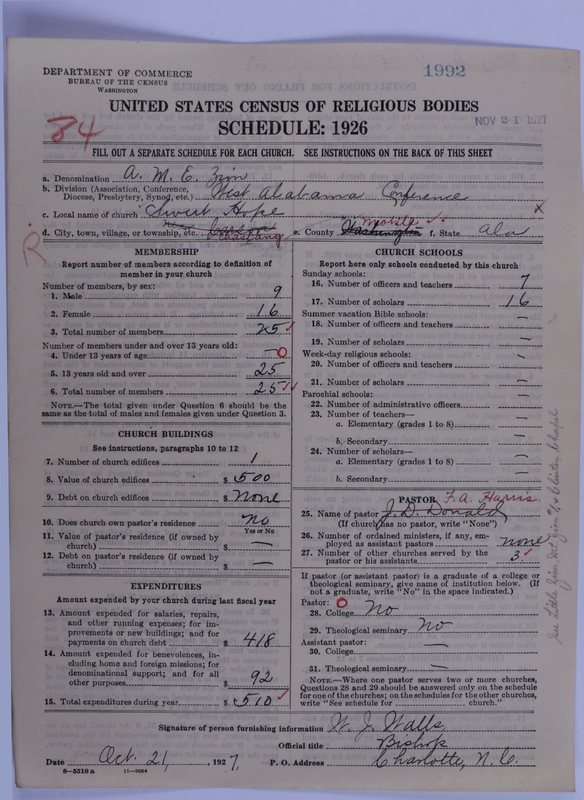 1992
DEPARTMENT OF COMMERCE
BUREAU OF THE CENSUS
WASHINGTON
UNITED STATES CENSUS OF RELIGIOUS BODIES
NOV 21 1927
SCHEDULE: 1926
84
FILL OUT A SEPARATE SCHEDULE FOR EACH CHURCH. SEE INSTRUCTIONS ON THE BACK OF THIS SHEET
a. Denomination A. M. E. Zion
b. Division (Association, Conference, Diocese, Presbytery, Synod, etc.) West Alabama Conference
c. Local name of church Sweet Hope
x
d. City, town, village, or township, etc. e. County Washington Mobile f. State Ala
R
MEMBERSHIP
Report number of members according to definition of
member in your church
Number of members, by sex:
1. Male 9
2. Female 16
3. Total number of members 25
Number of members under and over 13 years old:
4. Under 13 years of age — 0
5. 13 years old and over 25
6. Total number of members 25
NOTE.—The total given under Question 6 should be the
same as the total of males and females given under Question 3.
CHURCH BUILDINGS
See instructions, paragraphs 10 to 12
7. Number of church edifices 1
8. Value of church edifices $ 500
9. Debt on church edifices $ None
10. Does church own pastor's residence No
Yes or No
11. Value of pastor's residence (if owned by
church) $ —
12. Debt on pastor's residence (if owned by
church) $ —
EXPENDITURES
Amount expended by your church during last fiscal year
13. Amount expended for salaries, repairs,
and other running expenses; for im-
provements or new buildings; and for
payments on church debt $ 418
14. Amount expended for benevolences, in-
cluding home and foreign missions; for
denominational support; and for all
other purposes $ 92
15. Total expenditures during year $ 510
CHURCH SCHOOLS
Report here only schools conducted by this church
Sunday schools:
16. Number of officers and teachers 7
17. Number of scholars 16
Summer vacation Bible schools:
18. Number of officers and teachers —
19. Number of scholars —
Week-day religious schools:
20. Number of officers and teachers —
21. Number of scholars —
Parochial schools:
22. Number of administrative officers —
23. Number of teachers—
a. Elementary (grades 1 to 8) —
b. Secondary —
24. Number of scholars—
a. Elementary (grades 1 to 8) —
b. Secondary —
PASTOR F. A. Harris
25. Name of pastor J. D. Donald
(If church has no pastor, write "None")
26. Number of ordained ministers, if any, em-
ployed as assistant pastors none
27. Number of other churches served by the
pastor or his assistants 3
If pastor (or assistant pastor) is a graduate of a college or
theological seminary, give name of institution below. (If
not a graduate, write "No" in the space indicated.)
Pastor: 0
28. College No
29. Theological seminary No
Assistant pastor:
30. College —
31. Theological seminary —
NOTE.—Where one pastor serves two or more churches,
Questions 28 and 29 should be answered only on the schedule
for one of the churches; on the schedules for the other churches,
write "See schedule for church."
See Little Zion
Chapel
Signature of person furnishing information W. J. Walls
Official title Bishop
Date Oct. 21, 1927. P. O. Address Charlotte, N. C.
8—5518 a 11—9084